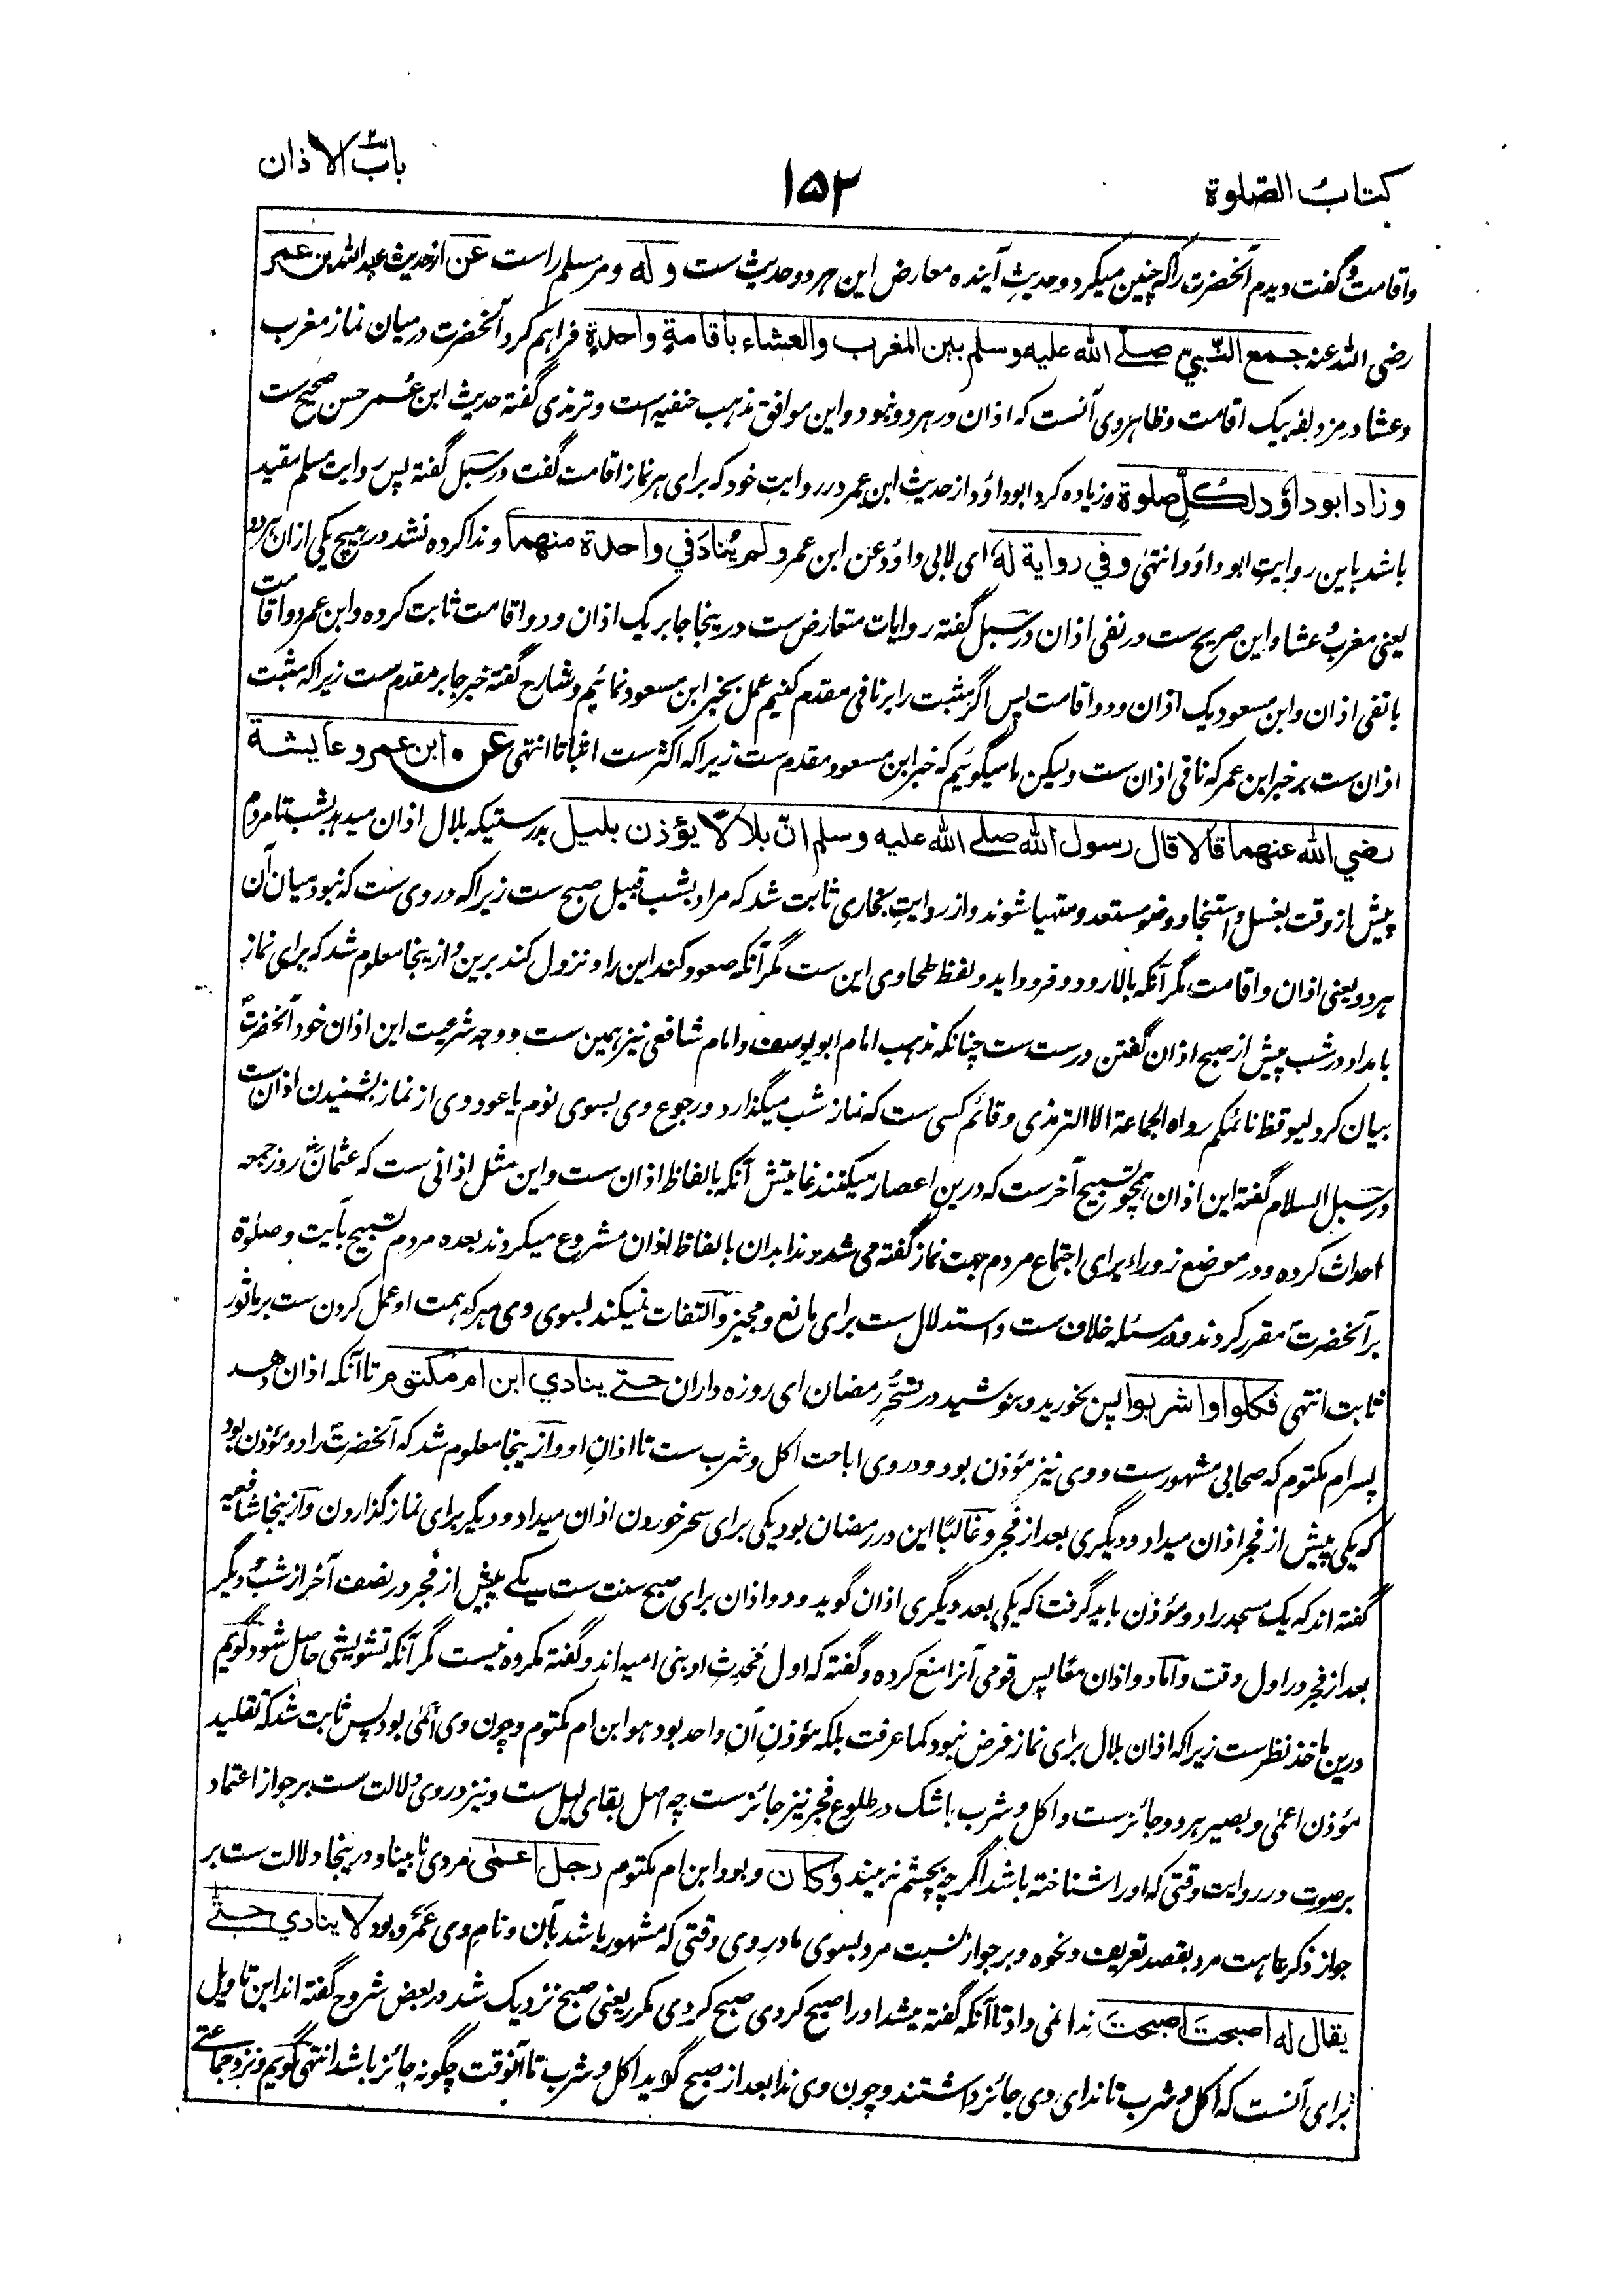 کتابُ الصّلوة
۱۵۲
بابُ الاذان
واقامت و گفت دیدم آنحضرت راکه چنین میکرد و حدیثِ آینده معارض این هر دو حدیث ست و له و مر مسلم راست عن از حدیث عبد اللّٰه بن عمر
رضی اللّٰه عنه جمع النّبيّ صلے اللّٰه علیه وسلم بین المغرب والعشاء بأقامةٍ واحدةٍ فراهم کرد آنحضرت درمیان نماز مغرب
وعشا در مزدلفه بیک اقامت وظاهر وی آنست که اذان در هر دو نبود و این موافق مذهب حنفیه است و ترمذی گفته حدیث ابن عُمر حسن صحیح ست
وزاد ابوداؤد لكُلّ صلوة وزیاده کرد ابوداؤد از حدیثِ ابن عمر در روایتِ خود که برای هر نماز اقامت گفت در سَبل گفته پس روایت مسلم مقید
باشد باین روایتِ ابوداؤد انتهیٰ وفي روایة لَه ای لابی داؤد عن ابن عمر ولم یُنادَ في واحدة منهما وندا کرده نشد در هیچ یکی ازان هر دو
یعنی مغرب وعشا و این صریح ست در نفی اذان در سَبل گفته روایات متعارض ست درینجا جابر یک اذان و دو اقامت ثابت کرده و ابن عمر دو اقامت
با نفی اذان و ابن مسعود یک اذان و دو اقامت پس اگر مثبت را بر نافی مقدم کنیم عمل بخبر ابن مسعود نمائیم و شارح گفته خبر جابر مقدم ست زیراکه مثبت
اذان ست بر خبر ابن عمر که نافی اذان ست ولیکن ما میگوئیم که خبر ابن مسعود مقدم ست زیراکه اکثر ست اثباتا انتهی عن ابن عمر وعایشة
رضي اللّٰه عنهما قالا قال رسول اللّٰه صلے اللّٰه علیه وسلم انّ بلالًا یؤذن بلیل بدرستیکه بلال اذان میدهد بشب تا مردم
پیش از وقت بغسل و استنجا و وضو مستعد و متهیا شوند و از روایتِ بخاری ثابت شد که مراد بشب قبیل صبح ست زیراکه در وی ست که نبود میان آن
هر دو یعنی اذان و اقامت مگر آنکه بالا رود و فرود آید و لفظ طحاوی این ست مگر آنکه صعود کند این را و نزول کند برین و ازینجا معلوم شد که برای نماز
بامداد در شب پیش از صبح اذان گفتن درست ست چنانکه مذهب امام ابو یوسف و امام شافعی نیز همین ست و وجه شرعیت این اذان خود آنحضرت
بیان کرد لیوقظ نائمکم رواه الجماعة الا الترمذی و قائم کسی ست که نماز شب میگذارد و رجوع وی بسوی نوم یا عود وی از نماز بشنیدن اذان ست
در سَبل السلام گفته این اذان همچو تسبیح آخر ست که درین اعصار میکنند غایتش آنکه بالفاظ اذان ست و این مثل اذانی ست که عثمان روز جمعه
احداث کرده و در موضع زوراء برای اجتماع مردم جهت نماز گفته می شد و ندا بدان بالفاظ اذان مشروع میکردند بعده مردم تسبیح بآیت وصلوٰة
بر آنحضرت مقرر کردند و در مسئله خلاف ست و استدلال ست برای مانع و مجیز و التفات نمیکند بسوی وی هر که همت او عمل کردن ست بر ماثور
ثابت انتهی فکلوا واشربوا پس بخورید و بنوشید در تسحّر رمضان ای روزه داران حتے ینادي ابن امّ مکتوم تا آنکه اذان دهد
پسر ام مکتوم که صحابی مشهور ست و وی نیز مؤذن بود و در وی اباحت اکل و شرب ست تا اذانِ او و ازینجا معلوم شد که آنحضرت را دو مؤذن بود
که یکی پیش از فجر اذان میداد و دیگری بعد از فجر و غالبًا این در رمضان بود یکی برای سحر خوردن اذان میداد و دیگر برای نماز گذاردن و ازینجا شافعیه
گفته اند که یک مسجد را دو مؤذن باید گرفت که یکی بعد دیگری اذان گوید و دو اذان برای صبح سنت ست یکے پیش از فجر در نصف آخر از شب و دیگر
بعد از فجر در اول وقت و اما دو اذان معًا پس قومی آنرا منع کرده و گفته که اول مُحدِثِ او بنی امیه اند و گفته مکروه نیست مگر آنکه تشویشی حاصل شود گویم
درین ماخذ نظر ست زیراکه اذان بلال برای نماز فرض نبود کما عرفت بلکه مؤذنِ آن واحد بود هو ابن ام مکتوم و چون وی اعمیٰ بود پس ثابت شد که تقلید
مؤذن اعمیٰ و بصیر هر دو جائز ست و اکل و شرب با شک در طلوع فجر نیز جائز ست چه اصل بقای لیل ست و نیز در وی دلالت ست بر جواز اعتماد
بر صوت در روایت وقتی که او را شناخته باشد اگر چه بچشم نه بیند وکان و بود ابن ام مکتوم رجل اعمیٰ مردی نابینا و درینجا دلالت ست بر
جواز ذکر عاهت مرد بقصد تعریف و نحوه و بر جواز نسبت مرد بسوی مادرِ وی وقتی که مشهور باشد بآن و نام وی عَمرو بود لا ینادي حتّے
یقال له اصبحتَ اصبحتَ ندا نمی داد تا آنکه گفته میشد او را صبح کردی صبح کردی مکرر یعنی صبح نزدیک شد در بعض شروح گفته اند این تاویل
برای آنست که اکل و شرب تا ندای وی جائز داشتند و چون وی ندا بعد از صبح گوید اکل و شرب تا آنوقت چگونه جائز باشد انتهی گویم و نزد جماعتے